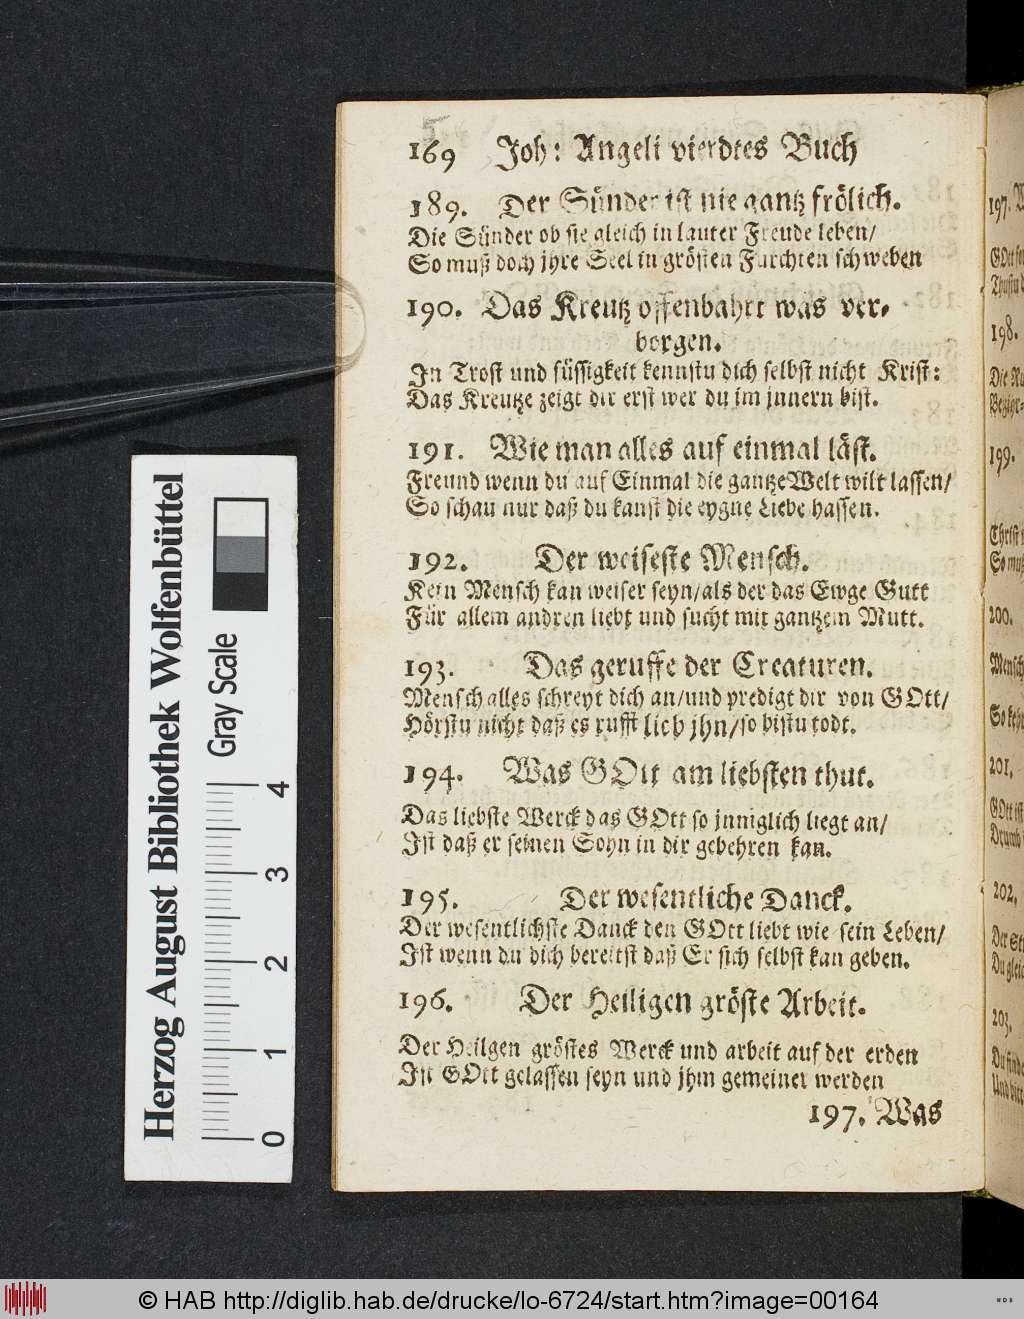 169 Joh: Angeli vierdtes Buch
189. Der Sünder ist nie gantz frölich.
Die Sünder ob sie gleich in lauter Freude leben/
So muß doch jhre Seel in grösten Furchten schweben
190. Das Kreutz offenbahrt was ver-
borgen.
In Trost und süssigkeit kennstu dich selbst nicht Krist:
Das Kreutze zeigt dir erst wer du im jnnern bist.
191. Wie man alles auf einmal läst.
Freund wenn du auf Einmal die gantze Welt wilt lassen/
So schau nur daß du kanst die eygne Liebe hassen.
192. Der weiseste Mensch.
Kein Mensch kan weiser seyn/als der das Ewge Gutt
Für allem andren liebt und sucht mit gantzem Mutt.
193. Das geruffe der Creaturen.
Mensch alles schreyt dich an/und predigt dir von GOtt/
Hörstu nicht daß es rufft lieb jhn/so bistu todt.
194. Was GOtt am liebsten thut.
Das liebste Werck das GOtt so jnniglich liegt an/
Ist daß er seinen Sohn in dir gebehren kan.
195. Der wesentliche Danck.
Der wesentlichste Danck den GOtt liebt wie sein Leben/
Ist wenn du dich bereitst daß Er sich selbst kan geben.
196. Der Heiligen gröste Arbeit.
Der Heilgen gröstes Werck und arbeit auf der erden
Ist GOtt gelassen seyn und jhm gemeiner werden
197. Was
197. W
198.
199.
200.
Mensch
201.
202.
203.
Herzog August Bibliothek Wolfenbüttel
Gray Scale
0 1 2 3 4
© HAB http://diglib.hab.de/drucke/lo-6724/start.htm?image=00164